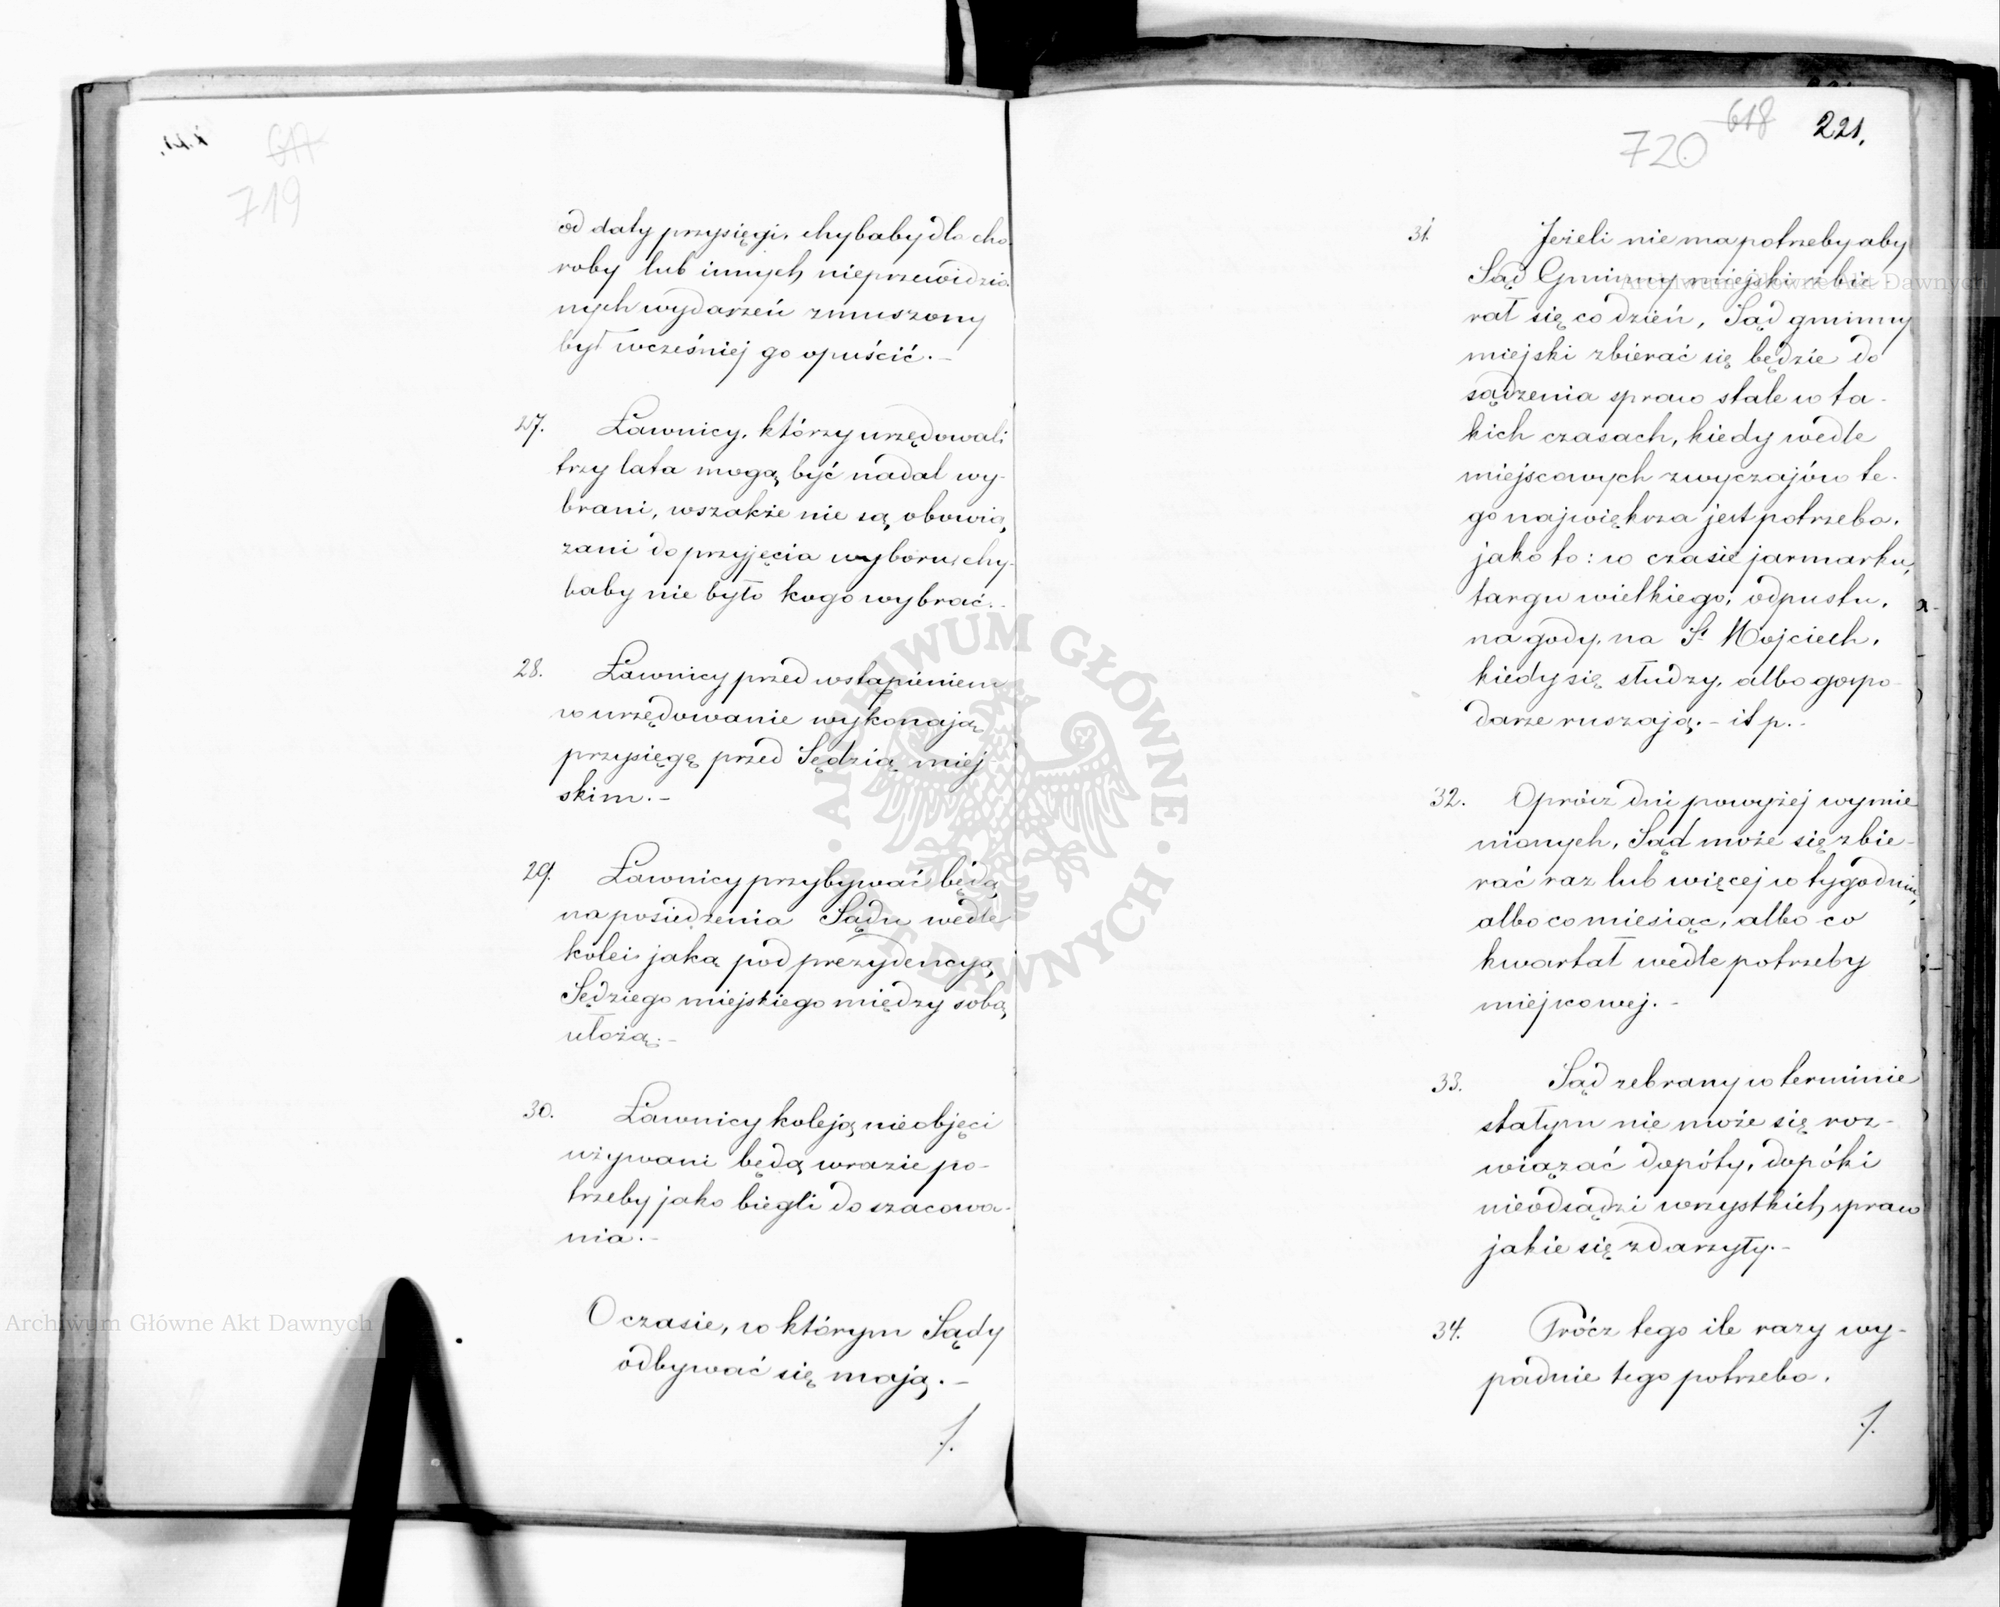 617
719
od daty przysięgi, chybaby dla cho-
roby lub innych nieprzewidzia-
nych wydarzeń zmuszony
był wcześniej go opuścić. –
27. Ławnicy, którzy urzędowali
trzy lata mogą być nadal wy-
brani, wszakże nie są obowią-
zani do przyjęcia wyboru, chy-
baby nie było kogo wybrać. –
28. Ławnicy przed wstąpieniem
w urzędowanie wykonają
przysięgę przed Sędzią miej
skim. –
29. Ławnicy przybywać będą
na posiedzenia Sądu wedle
kolei jaką pod prezydencyą
Sędziego miejskiego między sobą
ułożą. –
30. Ławnicy koleją nieobjęci
używani będą w razie po-
trzeby jako biegli do szacowa-
nia. –
O czasie, w którym Sądy
odbywać się mają. –
./.
618
720
221.
31. Jeżeli nie ma potrzeby aby
Sąd Gminny miejski zbie-
rał się co dzień, Sąd gminny
miejski zbierać się będzie do
sądzenia spraw stale w ta-
kich czasach, kiedy wedle
miejscowych zwyczajów te-
go największa jest potrzeba,
jako to: w czasie jarmarku,
targu wielkiego, odpustu,
na gody, na St. Wojciech,
kiedy się studzy, albo gospo-
darze ruszają. – i t p. –
32. Oprócz dni powyżej wymie
nionych, Sąd może się zbie-
rać raz lub więcej w tygodniu,
albo co miesiąc, albo co
kwartał wedle potrzeby
miejscowej. –
33. Sąd zebrany w terminie
stałym nie może się roz-
wiązać dopóty, dopóki
nieodsądzi wszystkich spraw
jakie się zdarzyły. –
34. Prócz tego ile razy wy-
padnie tego potrzeba,
./.
ARCHIWUM GŁÓWNE AKT DAWNYCH
Archiwum Główne Akt Dawnych
Archiwum Główne Akt Dawnych